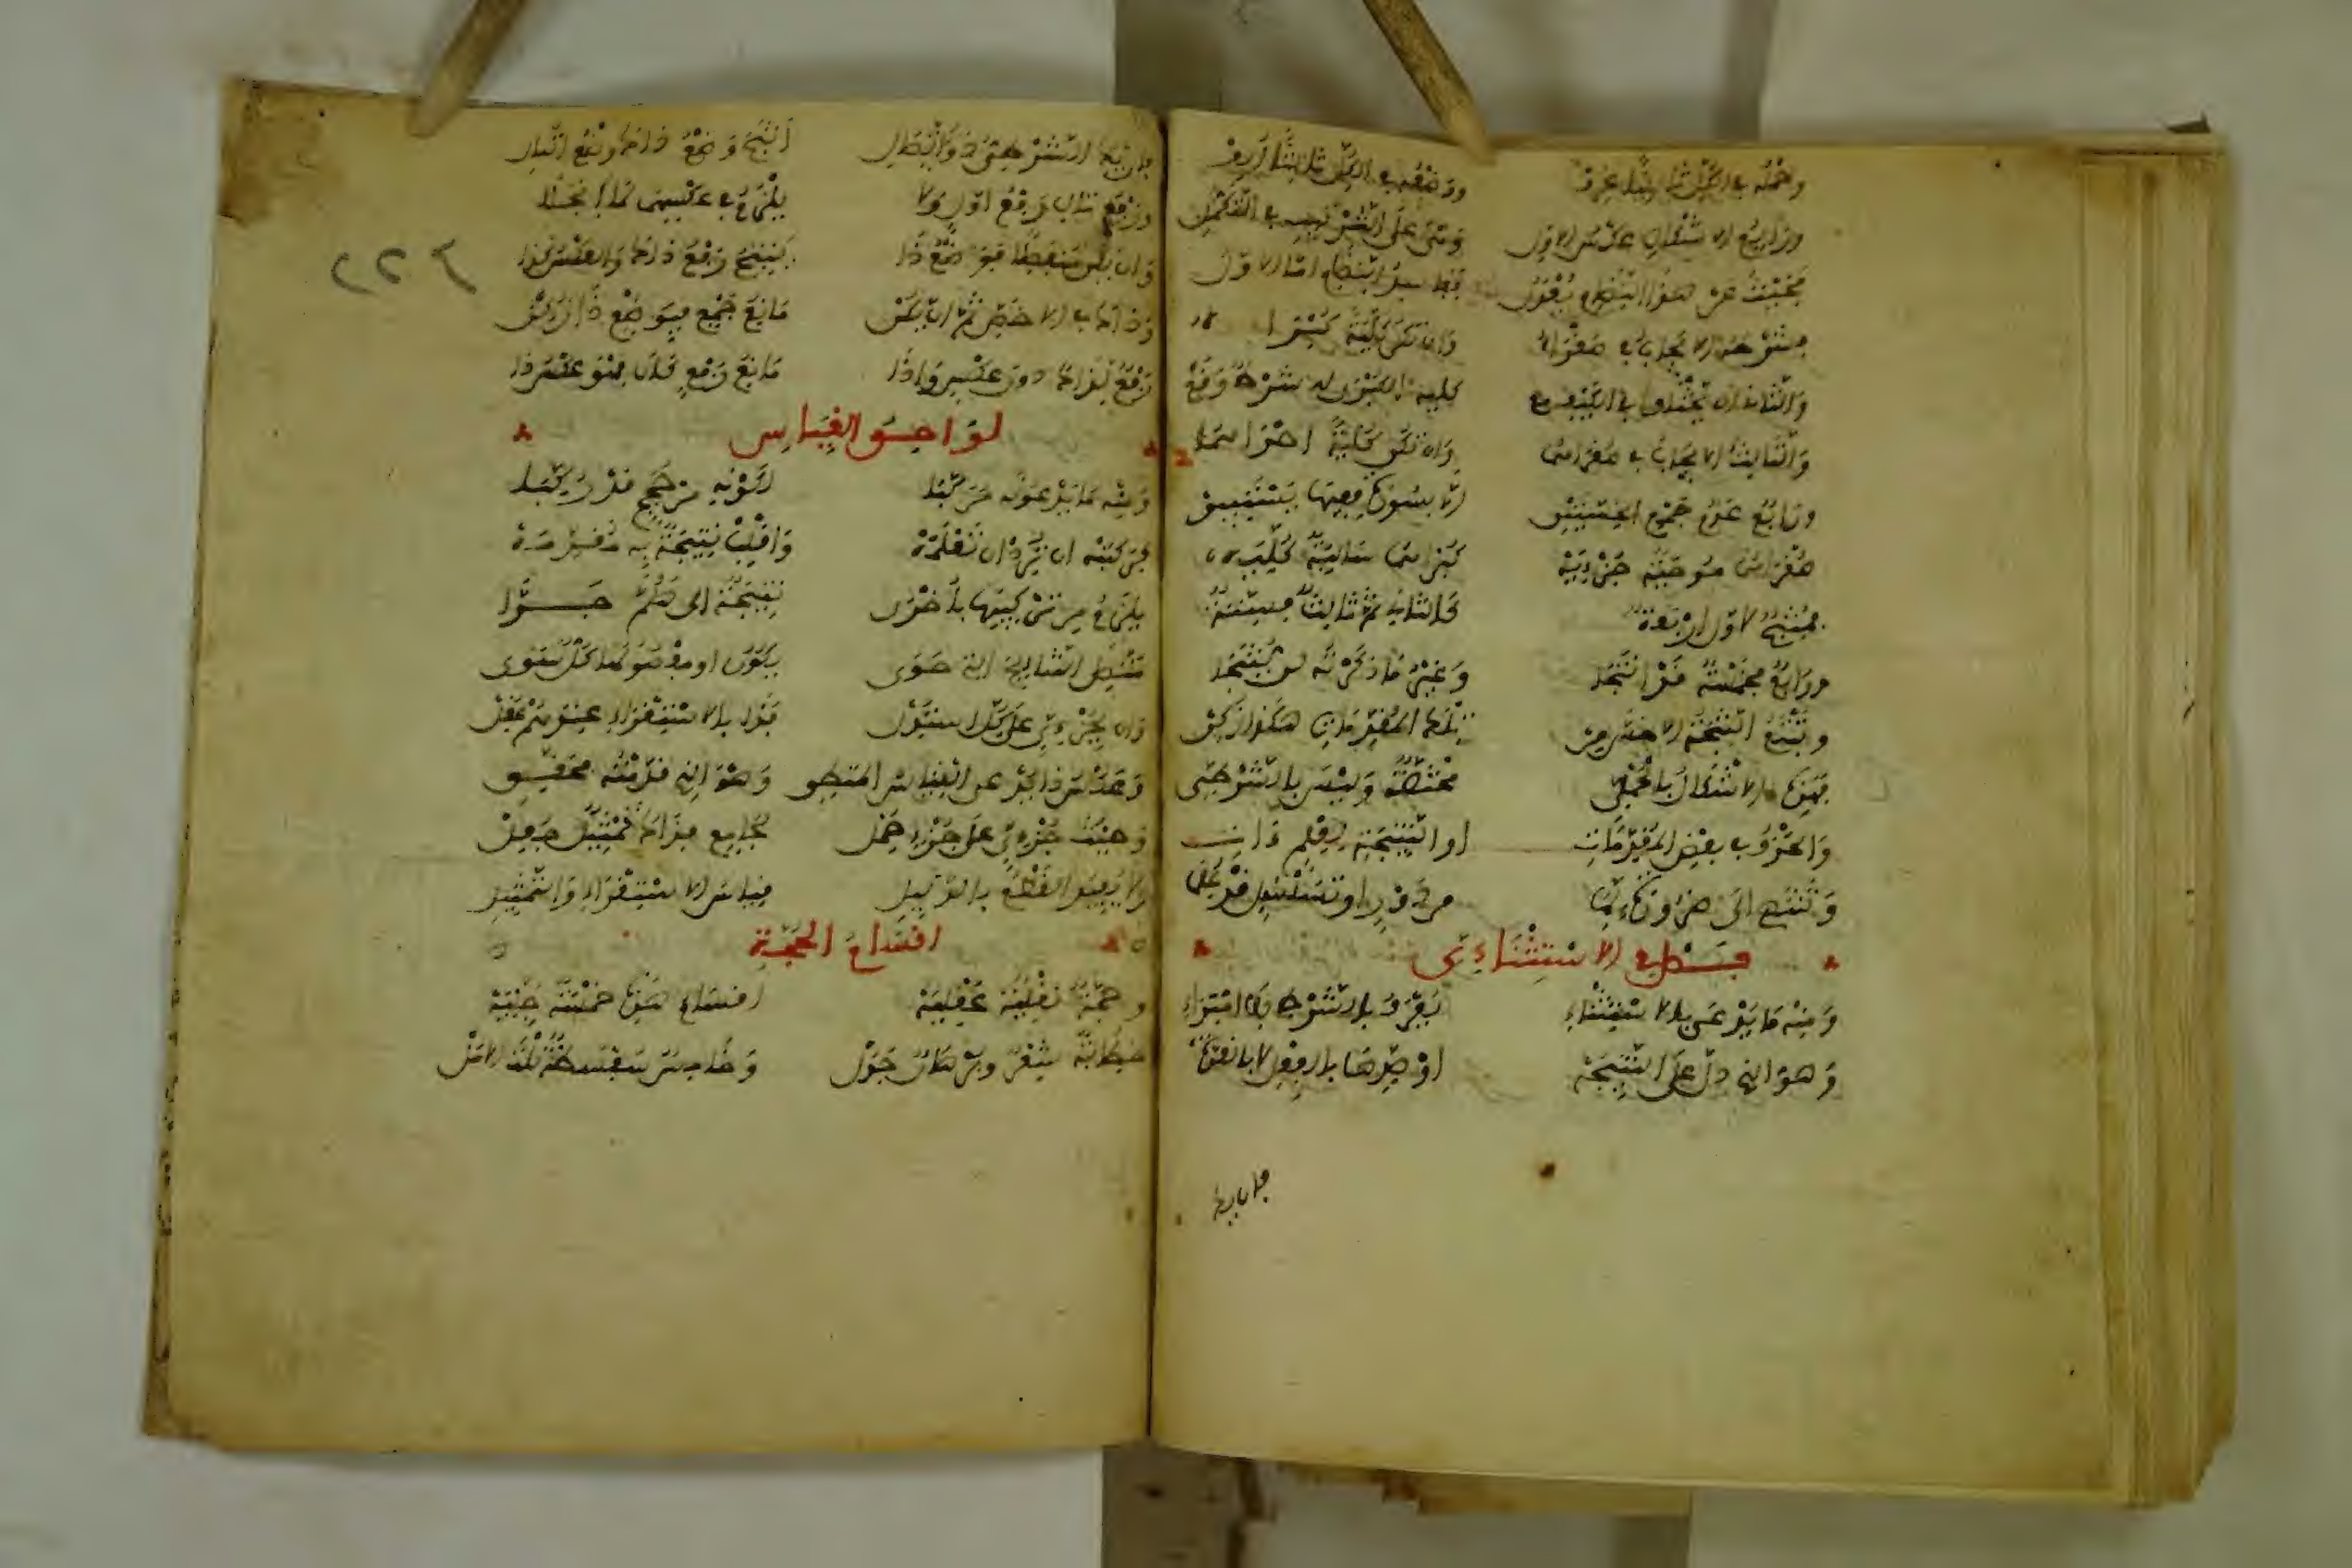 وحمله في الكل ثانيا عرف ووضعه في الكل ثالثا ألف
ورابع الاشكال عكس الاول وهي على الترتيب في التكمل
فحيث عن هذا النظام يعدل ففاسد النظام اما الاول
فشرطه الايجاب في صغراه وان ترى كلية كبراه
والثان ان يختلفا في الكيف مع كلية الكبرى له شرط وقع
والثالث الايجاب في صغراهما وان تكن كلية احداهما
ورابع عدم جمع الخستين الا بصورة ففيها يستبين
صغراهما موجبة جزئية كبراهما سالبة كلية
فمنتج لاول اربعة كالثان ثم ثالث فستة
ورابع بخمسة قد انتجا وغير ما ذكرته لن ينتجا
وتتبع النتيجة الاخس من تلك المقدمات هكذا زكن
وهذه الاشكال بالحملي مختصة وليس بالشرطي
والحذف في بعض المقدمات او النتيجة لعلم ءات
وتنتهي الى ضرورة لما من دور او تسلسل قد لزما
فصل في الاستثناءي
ومنه ما يدعى بالاستثناء يعرف بالشرط بلا امتراء
وهو الذي دل على النتيجة او ضدها بالفعل لا بالقوة
فان يك
فان يك الشرطي ذا اتصال انتج وضع ذاك وضع التال
ورفع تال رفع اول ولا يلزم في عكسهما لما انجلا
وان يكن منفصلا فوضع ذا ينتج رفع ذاك والعكس كذا
وذاك في الاخص ثم ان يكن مانع جمع فبوضع ذا زكن
رفع لذاك دون عكس واذا مانع رفع كان فهو عكس ذا
لواحق القياس
ومنه ما يدعونه مركبا لكونه من حجج قد ركبا
فركبنه ان ترد ان تعلمه واقلب نتيجة به مقدمة
يلزم من تركيبها باخرى نتيجة الى هلم جرا
متصل النتايج الذي حوى يكون او مفصولها كل سوى
وان بجزءي على كل استدل فذا بالاستقراء عندهم عقل
وعكسه يدعى القياس المنطقي وهو الذي قدمته فحقق
وحيث جزءي على جزءي حمل لجامع فذاك تمثيل جعل
ولا يفيد القطع بالدليل قياس الاستقراء والتمثيل
اقسام الحجة
وحجة نقلية عقلية اقسام هذي خمسة جلية
خطابة شعر وبرهان جدل وخامس سفسطة نلت الامل